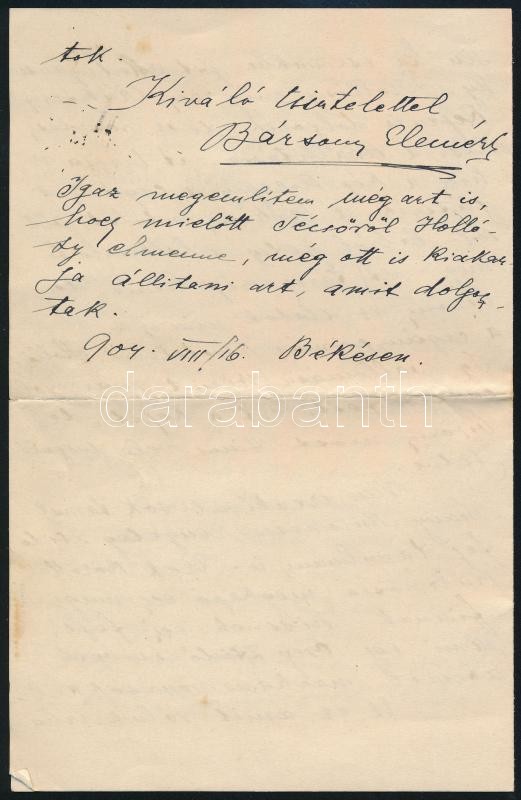 tok.
Kiváló tisztelettel
Bársony Elemér
Igaz megemlitem még azt is,
hogy mielőtt Técsőről Holló-
sy elmenne, még ott is kiakar-
ja állitani azt, amit dolgoz-
tak.
904. VIII/16. Békésen.
darabanth